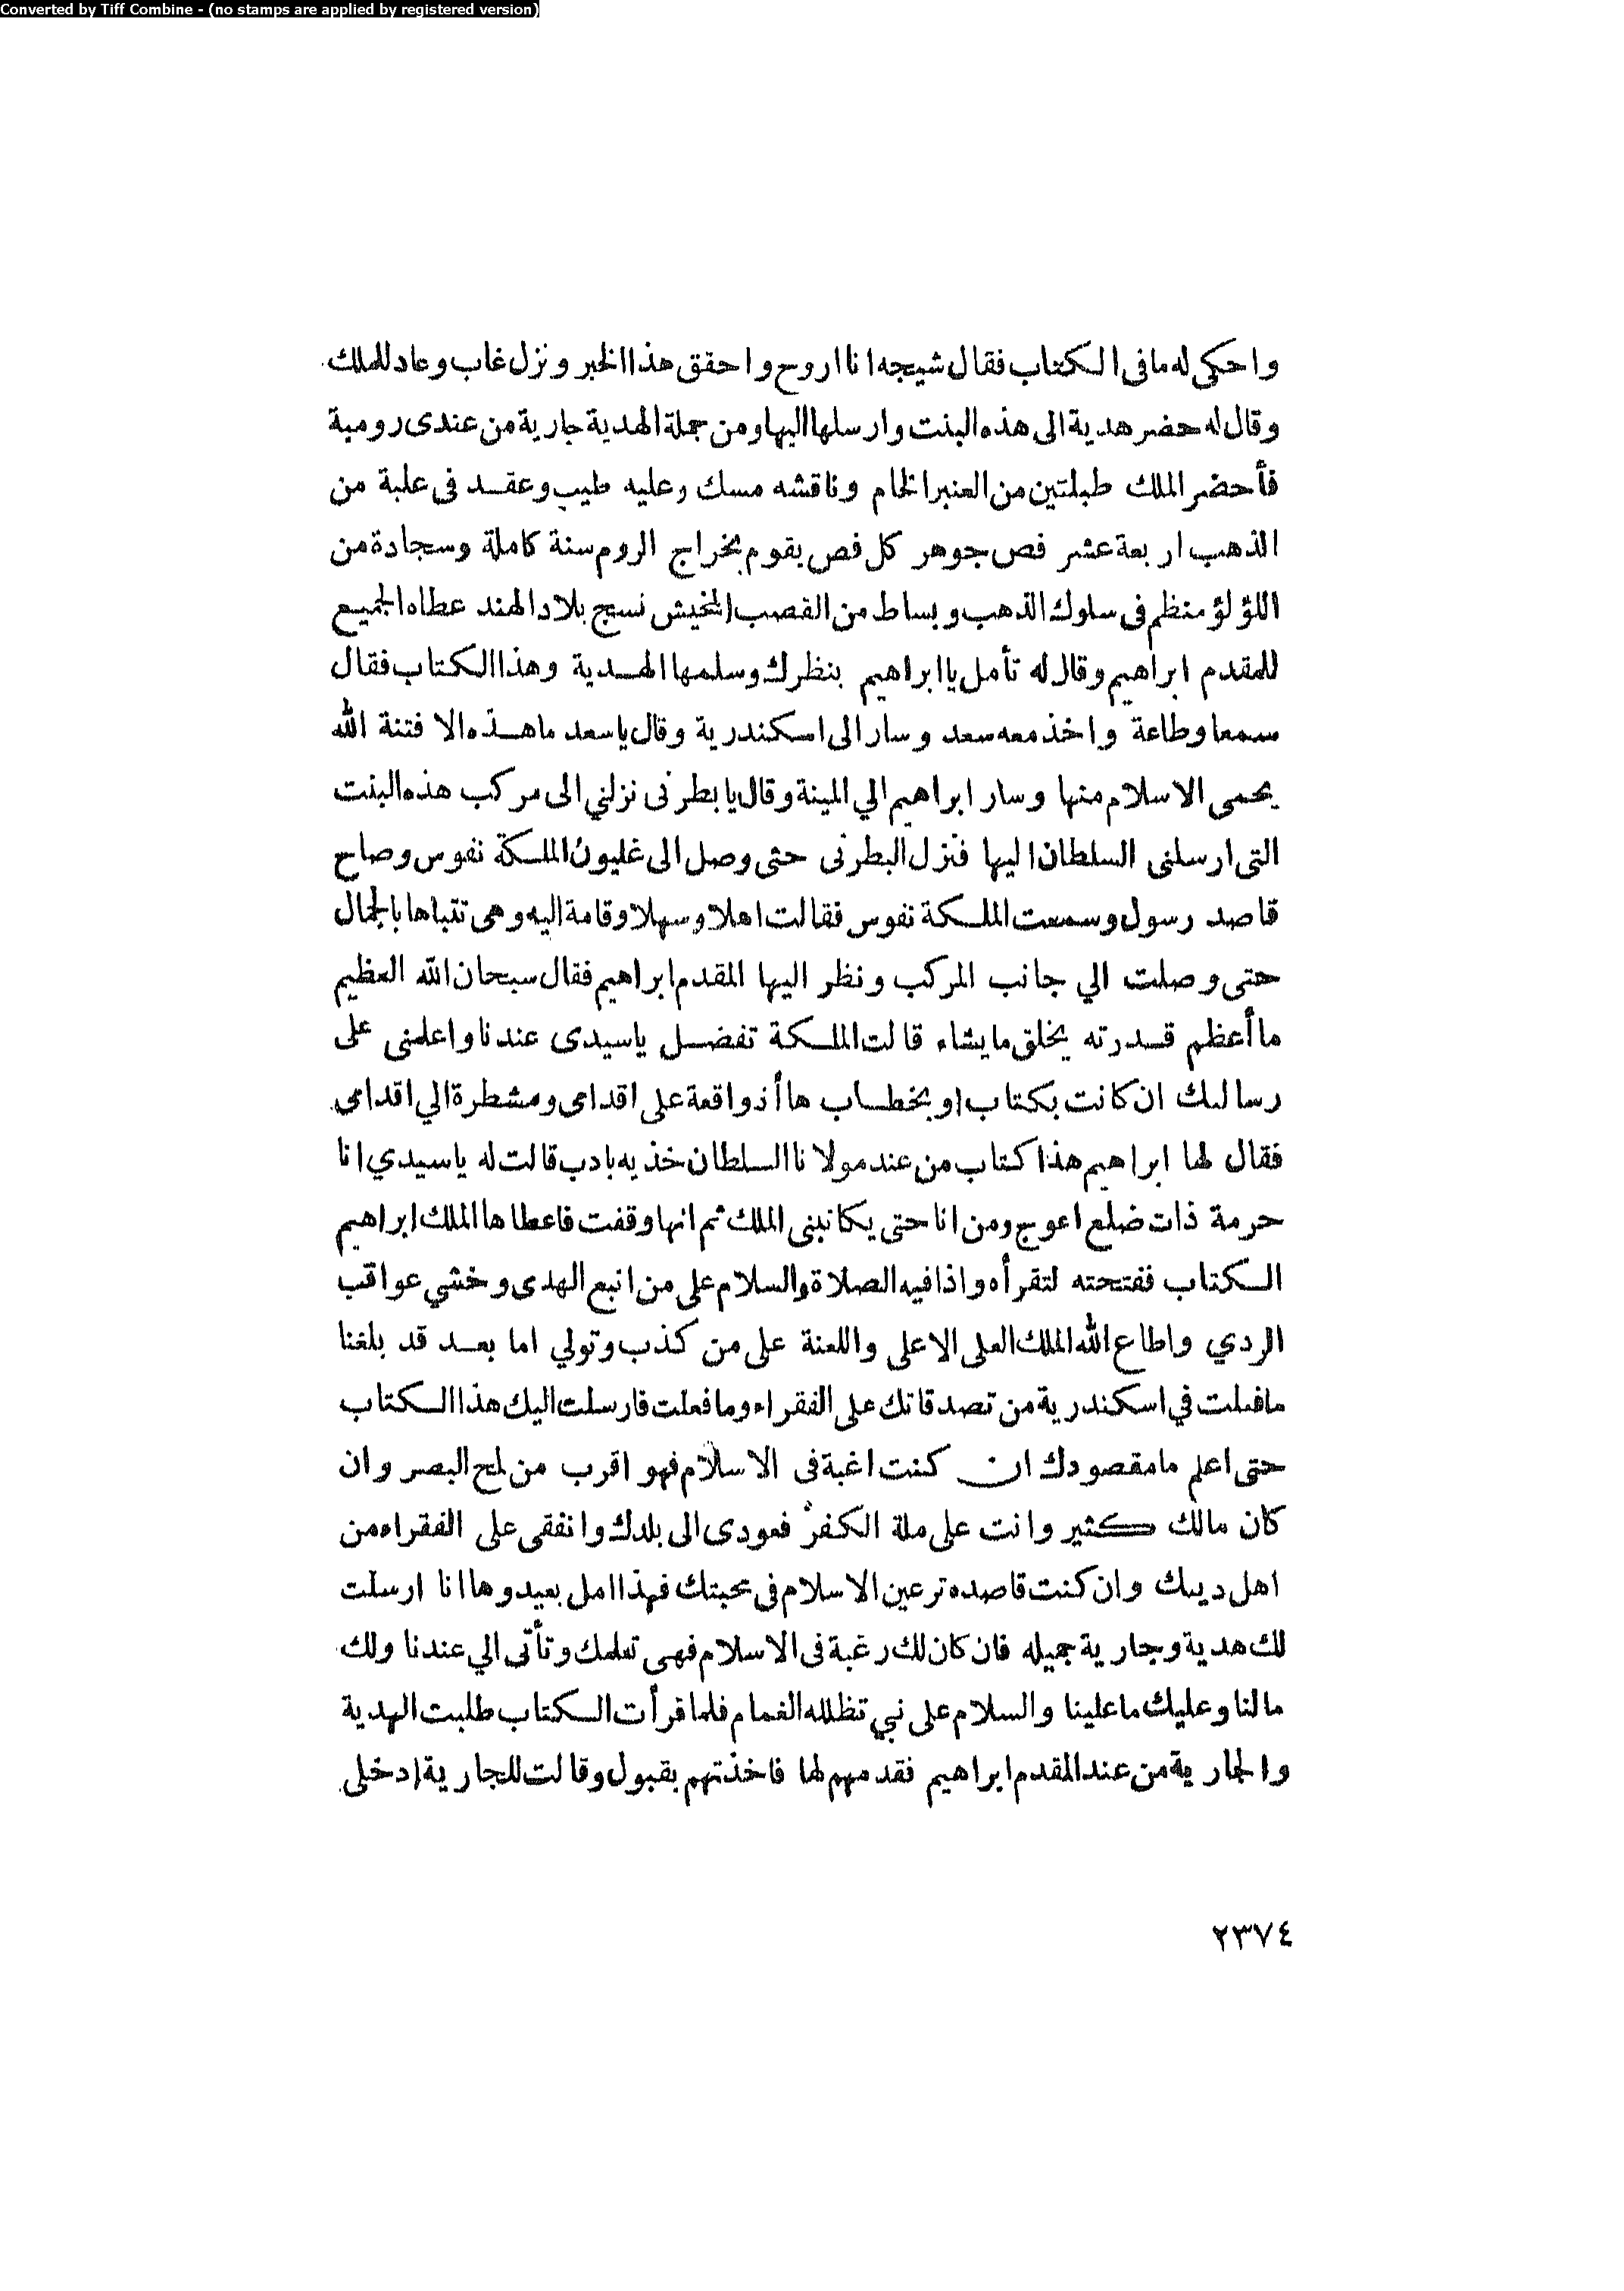 Converted by Tiff Combine - (no stamps are applied by registered version)
واحكى له مافى الكتاب فقال شيحه انا اروح واحقق هذا الخبر ونزل غاب وعاد للملك
وقال له حضر هدية الى هذه البنت وارسلها اليها ومن جملة الهدية جارية من عندى رومية
فأحضر الملك طبلتين من العنبر الخام وناقشه مسك وعليه طيب وعقد فى علبة من
الذهب اربعة عشر فص جوهر كل فص يقوم بخراج الروم سنة كاملة وسجادة من
اللؤلؤ منظم فى سلوك الذهب وبساط من القصب المخيش نسج بلاد الهند عطاه الجميع
للمقدم ابراهيم وقال له تأمل يا ابراهيم بنظرك وسلمها الهدية وهذا الكتاب فقال
سمعا وطاعة واخذ معه سعد وسار الى اسكندرية وقال ياسعد ماهذه الا فتنة الله
يحمى الاسلام منها وسار ابراهيم الي المينة وقال يا بطرنى نزلني الى مركب هذه البنت
التى ارسلنى السلطان اليها فنزل البطرنى حتى وصل الى غليون الملكة نفوس وصاح
قاصد رسول وسمعت الملكة نفوس فقالت اهلا وسهلا وقامة اليه وهى تتباها بالجمال
حتى وصلت الي جانب المركب ونظر اليها المقدم ابراهيم فقال سبحان الله العظيم
ما أعظم قدرته يخلق مايشاء قالت الملكة تفضل ياسيدى عندنا واعلمنى على
رسالىك ان كانت بكتاب او بخطاب ها أذواقعة على اقدامى ومشطرة الي اقدامى
فقال لها ابراهيم هذا كتاب من عند مولانا السلطان خذيه بادب قالت له ياسيدي انا
حرمة ذات ضلع اعوج ومن انا حتى يكاتبنى الملك ثم انها وقفت فاعطاها الملك ابراهيم
الكتاب ففتحته لتقرأه واذا فيه الصلاة والسلام على من اتبع الهدى وخشي عواقب
الردي واطاع الله الملك العلى الاعلى واللعنة على من كذب وتولي اما بعد قد بلغنا
مافعلت في اسكندرية من تصدقاتك على الفقراء وما فعلت فارسلت اليك هذا الكتاب
حتى اعلم مامقصودك ان كنت اغبة فى الاسلام فهو اقرب من لمح البصر وان
كان مالك كثير وانت على ملة الكفر فعودى الى بلدك وانفقى على الفقراء من
اهل دىىك وان كنت قاصده ترعين الاسلام فى محبتك فهذا امل بعيد وها انا ارسلت
لك هدية وجارية جميله فان كان لك رغبة فى الاسلام فهى تعلمك وتأتى الي عندنا ولك
مالنا وعليك ماعلينا والسلام على نبي تظلله الغمام فلما قرأت الكتاب طلبت الهدية
والجارية من عند المقدم ابراهيم فقدمهم لها فاخذتهم بقبول وقالت للجارية ادخلى
٢٣٧٤